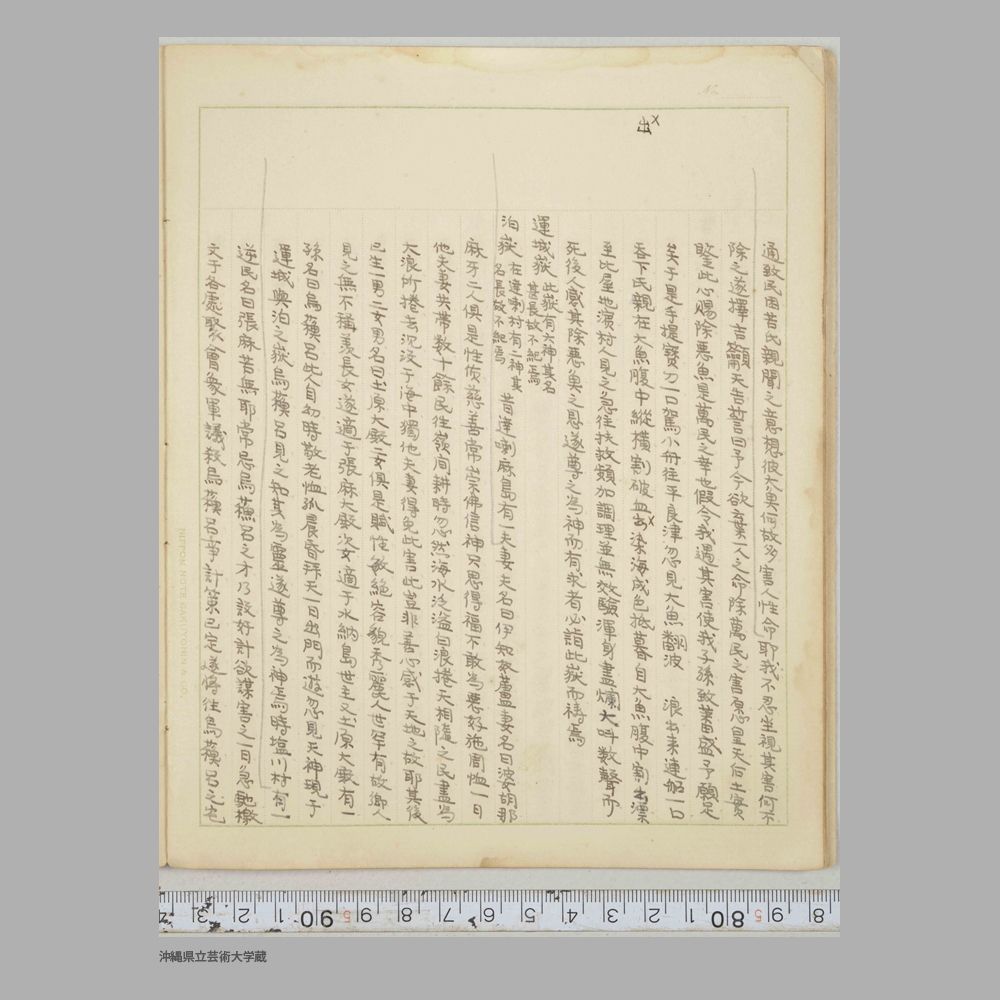 出×
通致民困苦氏親聞之意想彼大魚何故多害人性命耶我不忍坐視其害何不
除之遂擇吉籲天告誓曰予今欲棄一人之命除萬民之害愿皇天后土實
鑒此心賜除悪魚是萬民之幸也假令我遇其害使我子孫致蕃盛予願足
矣于是手提寶刀口駕小舟往平良津忽見大魚翻波 浪中来連船一口
呑下氏親在大魚腹中縦横割破血出染海成色抵暮自大魚腹中割出漂
至比屋地濱村人見之急往扶救頻加調理並無效驗渾身盡爛大呼数聲而
死後人感其除悪魚之恩遂尊之為神而有求者必詣此嶽而禱焉
運城嶽 此嶽有六神其名甚長故不紀焉
泊嶽 在達喇村有二神其名長故不紀焉 昔達喇麻島有一夫妻夫名曰伊知故蘆妻名曰波安胡那
麻牙二人俱是性依慈善常崇佛信神只思得福不敢為悪好施周恤一日
他夫妻共帯数十餘民往嶺间耕時忽然海水泛溢白浪捲天相随之民盡為
大浪所捲去沉没于海中獨他夫妻得免此害此豈非善心感于天地之故耶其後
已生一男二女男名曰土原大殿二女俱是賦性敏絶容貌秀麗人世罕有故郷人
見之無不稱羨長女遂適于張麻大殿次女適于水納島世主又土原大殿有一
孫名曰烏蘓呂此人自幼時敬老恤孤晨昏拜天一日出門而遊忽見天神現于
運城與泊之嶽烏蘓呂見之知其為靈遂尊之為神焉時塩川村有一
逆民名曰張麻苦無耶常忌烏蘓呂之才乃設奸計欲謀害之一日急馳檄
文于各處聚會象軍議殺烏蘓呂爭計策已定遂將往烏蘓呂之宅
NIPPON NOTE
沖縄県立芸術大学蔵